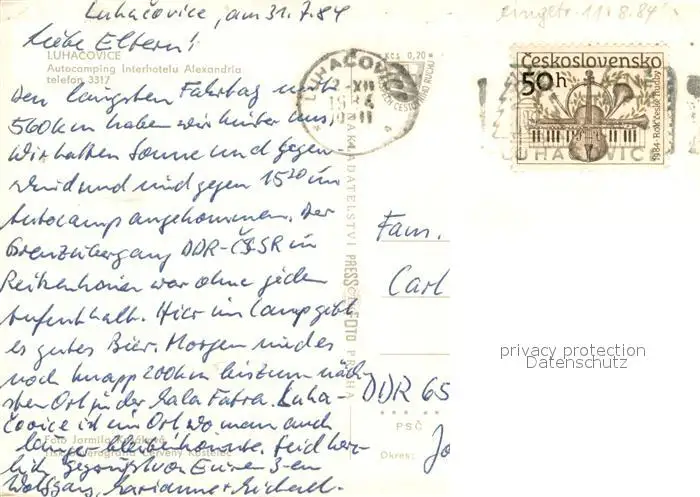 Luhačovice, am 31.7.84
eingetr. 11.8.84
Liebe Eltern!
LUHAČOVICE
Autocamping Interhotelu Alexandria
telefon 3317
Den längsten Fahrtag mit
560 km haben wir hinter uns.
Wir hatten Sonne und Gegen-
wind und sind gegen 15²⁰ im
Autocamp angekommen. Der
Grenzübergang DDR-ČSSR in
Reitzenhain war ohne jeden
Aufenthalt. Hier im Camp gibt
es gutes Bier. Morgen sind es
noch knapp 200 km bis zum näch-
sten Ort in der Mala Fatra. Luha-
čovice ist ein Ort wo man auch
länger bleiben könnte. Seid herz-
lich gegrüßt von Euren 3-en
Wolfgang, Marianne + Michael.
Foto Jarmila
Červený Kostelec
Kčs 0,20
LUHAČOVICE
NAKLADATELSTVÍ PRESSFOTO PRAHA
Československo
50h
1984 · Rok české hudby
LUHAČOVICE
Fam.
Carl
DDR 65
PSČ
Okres: Jo
privacy protection
Datenschutz